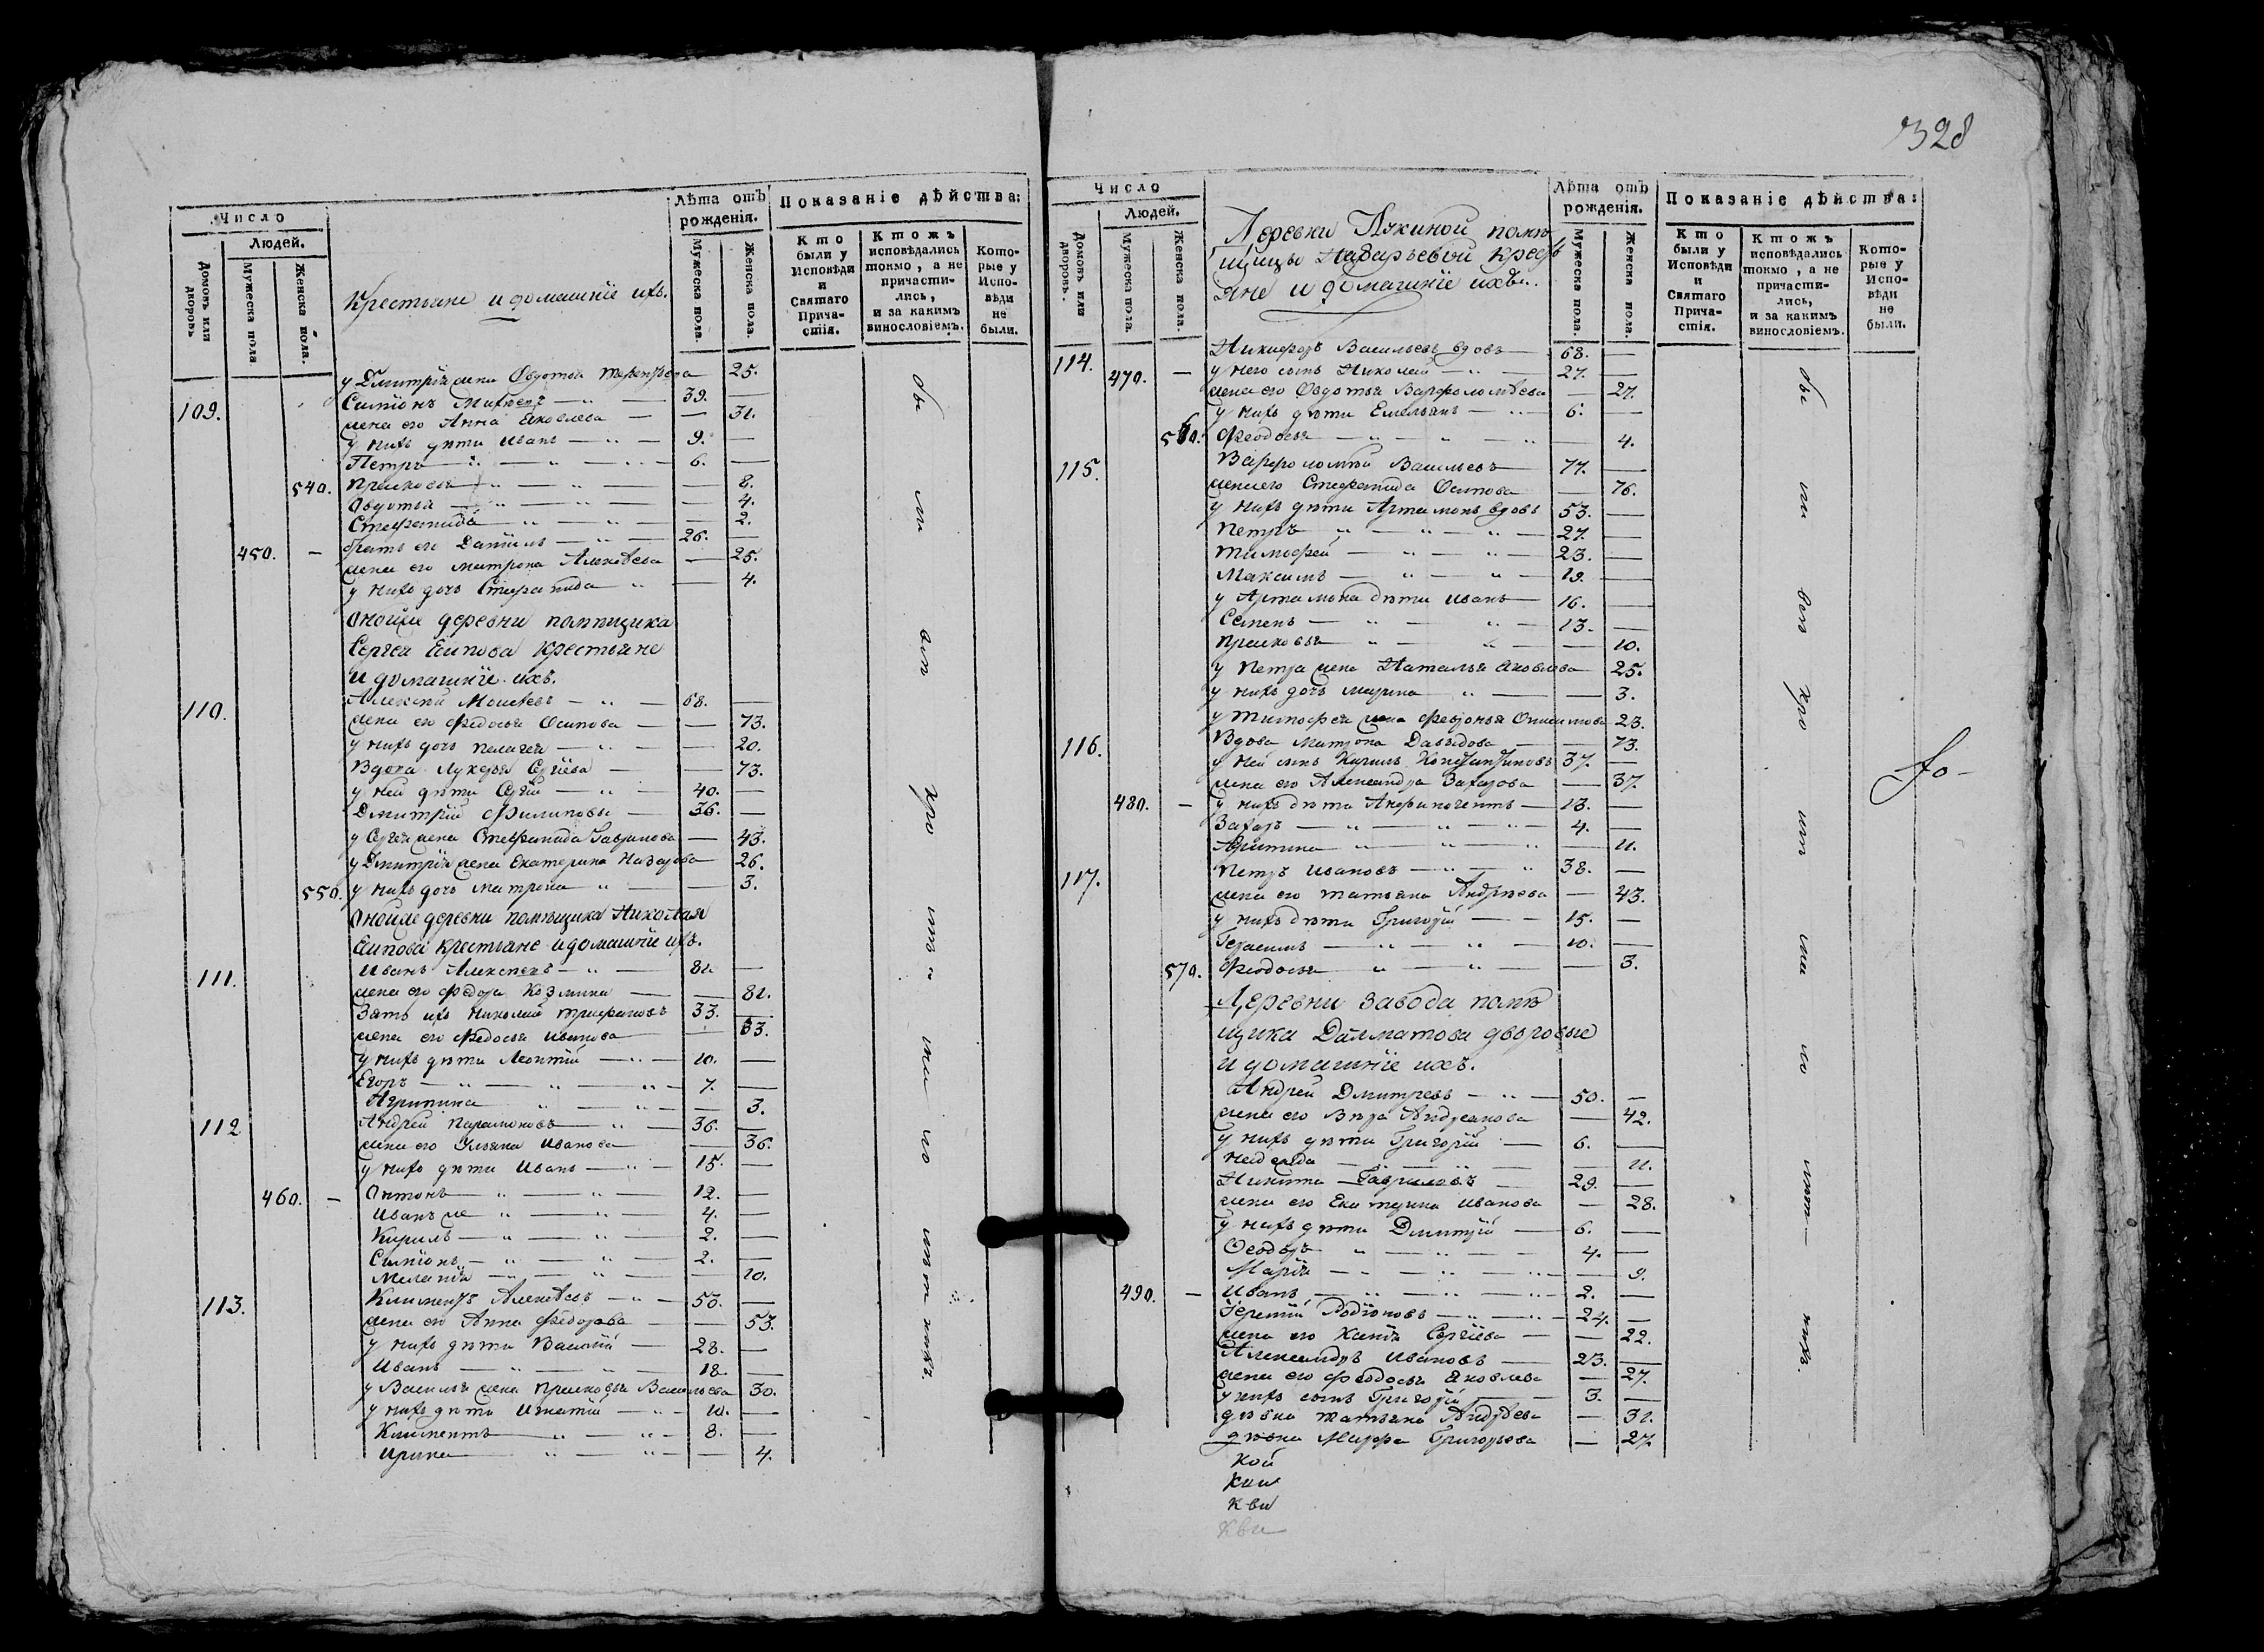 Число
Людей.
Домовъ или дворовъ
Мужеска пола
Женска пола.
Крестьяне и домашніе ихъ.
Лѣта отъ рожденія.
Мужеска пола.
Женска пола.
Показаніе дѣйства:
Кто были у Исповѣди и Святаго Прича-стія.
Ктожъ исповѣдались токмо, а не причасти-лись, и за какимъ винословіемъ.
Кото-рые у Испо-вѣди не были.
у Дмитрія жена Овдотья 25.
109. Симіонъ 39. —
жена его Анна Яковлева — — 31.
у нихъ дѣти Иванъ — 9. —
Петръ — 6. —
540. Прасковья — — 8.
Овдотья — — 4.
Стефанида — — 2.
450. — братъ его Даніилъ — 26. —
жена его матрона Алексѣева — 25.
у нихъ дочь Стефанида — 4.
Оной же деревни помѣщика
Сергея Еипова крестьяне
и домашніе ихъ.
110. Алексей Моисѣевъ — 68. —
жена его Федосья Осипова — — 73.
у нихъ дочь пелагея — — 20.
Вдова Лукерья Сергіева — — 73.
у ней дѣти Сергій — 40. —
Дмитрій Филиповы — 36. —
у Сергея жена Стефанида Гаврилова — 43.
у Дмитрія жена Екатерина Назарова 26.
550. у нихъ дочь матрона — 3.
Оной же деревни помѣщика Николая
Еипова крестьяне и домашніе ихъ.
111. Иванъ Алексеевъ — 81. —
жена его Федора Козмина — — 81.
Зять ихъ Николай Трифоновъ 33. —
жена его Федосья Иванова — 33.
у нихъ дѣти Леонтій — 10. —
Егоръ — 7. —
Агрипина — — 3.
112 Андрей Парамоновъ — 36. —
жена его Ульяна Иванова — 36.
у нихъ дѣти Иванъ — 15. —
460. — Антонъ — 12. —
Иванъ же — 4. —
Кирилъ — 2. —
Симіонъ — 2. —
Меланія — — 10.
113. Климентъ Алексѣевъ — 53. —
жена его Анна Федорова — — 53.
у нихъ дѣти Василій — 28. —
Иванъ — 18. —
у Василья жена Прасковья Васильева 30.
у нихъ дѣти Игнатій — 10. —
Климентъ — 8. —
Ирина — — 4.
328
Число
Людей.
Домовъ или дворовъ.
Мужеска пола.
Женска пола.
Деревни Лукиной помѣ
щицы Назарьевой Кресть
яне и домашніе ихъ.
Лѣта отъ рожденія.
Мужеска пола.
Женска пола.
Показаніе дѣйства:
Кто были у Исповѣди и Святаго Прича-стія.
Ктожъ исповѣдались токмо, а не причасти-лись, и за какимъ винословіемъ.
Кото-рые у Испо-вѣди не были.
114. Никифоръ Васильевъ вдовъ — 68. —
470. — у него сынъ Николай — 27. —
жена его Овдотья Варфоломѣева — 27.
у нихъ дѣти Емельянъ — 6. —
560. Феодосья — — 4.
115. Варфоломѣй Васильевъ 77. —
жена его Стефанида Осипова — 76.
у нихъ дѣти Артамонъ вдовъ 53. —
Петръ — 27. —
Тимофей — 23. —
Максимъ — 19. —
у Артамона дѣти Иванъ — 16. —
Семенъ — 13. —
Прасковья — — 10.
у Петра жена Наталья Яковлева 25.
у нихъ дочь Марина — — 3.
у Тимофея жена Февронья Онисимова 23.
116. Вдова Матрона Давыдова — 73.
у ней сынъ Кирилъ Константиновъ 37. —
жена его Александра Захарова — 37.
480. — у нихъ дѣти — 13. —
Захаръ — 4. —
— 11.
117. Петръ Ивановъ — 38. —
жена его Татьяна Андрѣева — 43.
у нихъ дѣти Григорій — 15. —
Герасимъ — 10. —
570. Феодосья — — 3.
Деревни Завода помѣ
щика Далматова дворовые
и домашніе ихъ.
Андрей Дмитревъ — 50. —
жена его Вѣра Андреянова — 42.
у нихъ дѣти Григорій — 6. —
— 11.
Никита Гавриловъ — 29. —
жена его Екатерина Иванова — 28.
у нихъ дѣти Дмитрій — 6. —
Феодоръ — 4. —
Марія — — 9.
490. — Иванъ — 2. —
Іеремій Родіоновъ — 24. —
жена его Сергіева — — 22.
Александръ Ивановъ — 23. —
жена его Феодосья Яковлева — 27.
у нихъ сынъ Григорій — 3. —
дѣвка Татьяна Андрѣева — 31.
дѣвка Марфа Григорьева — 27.